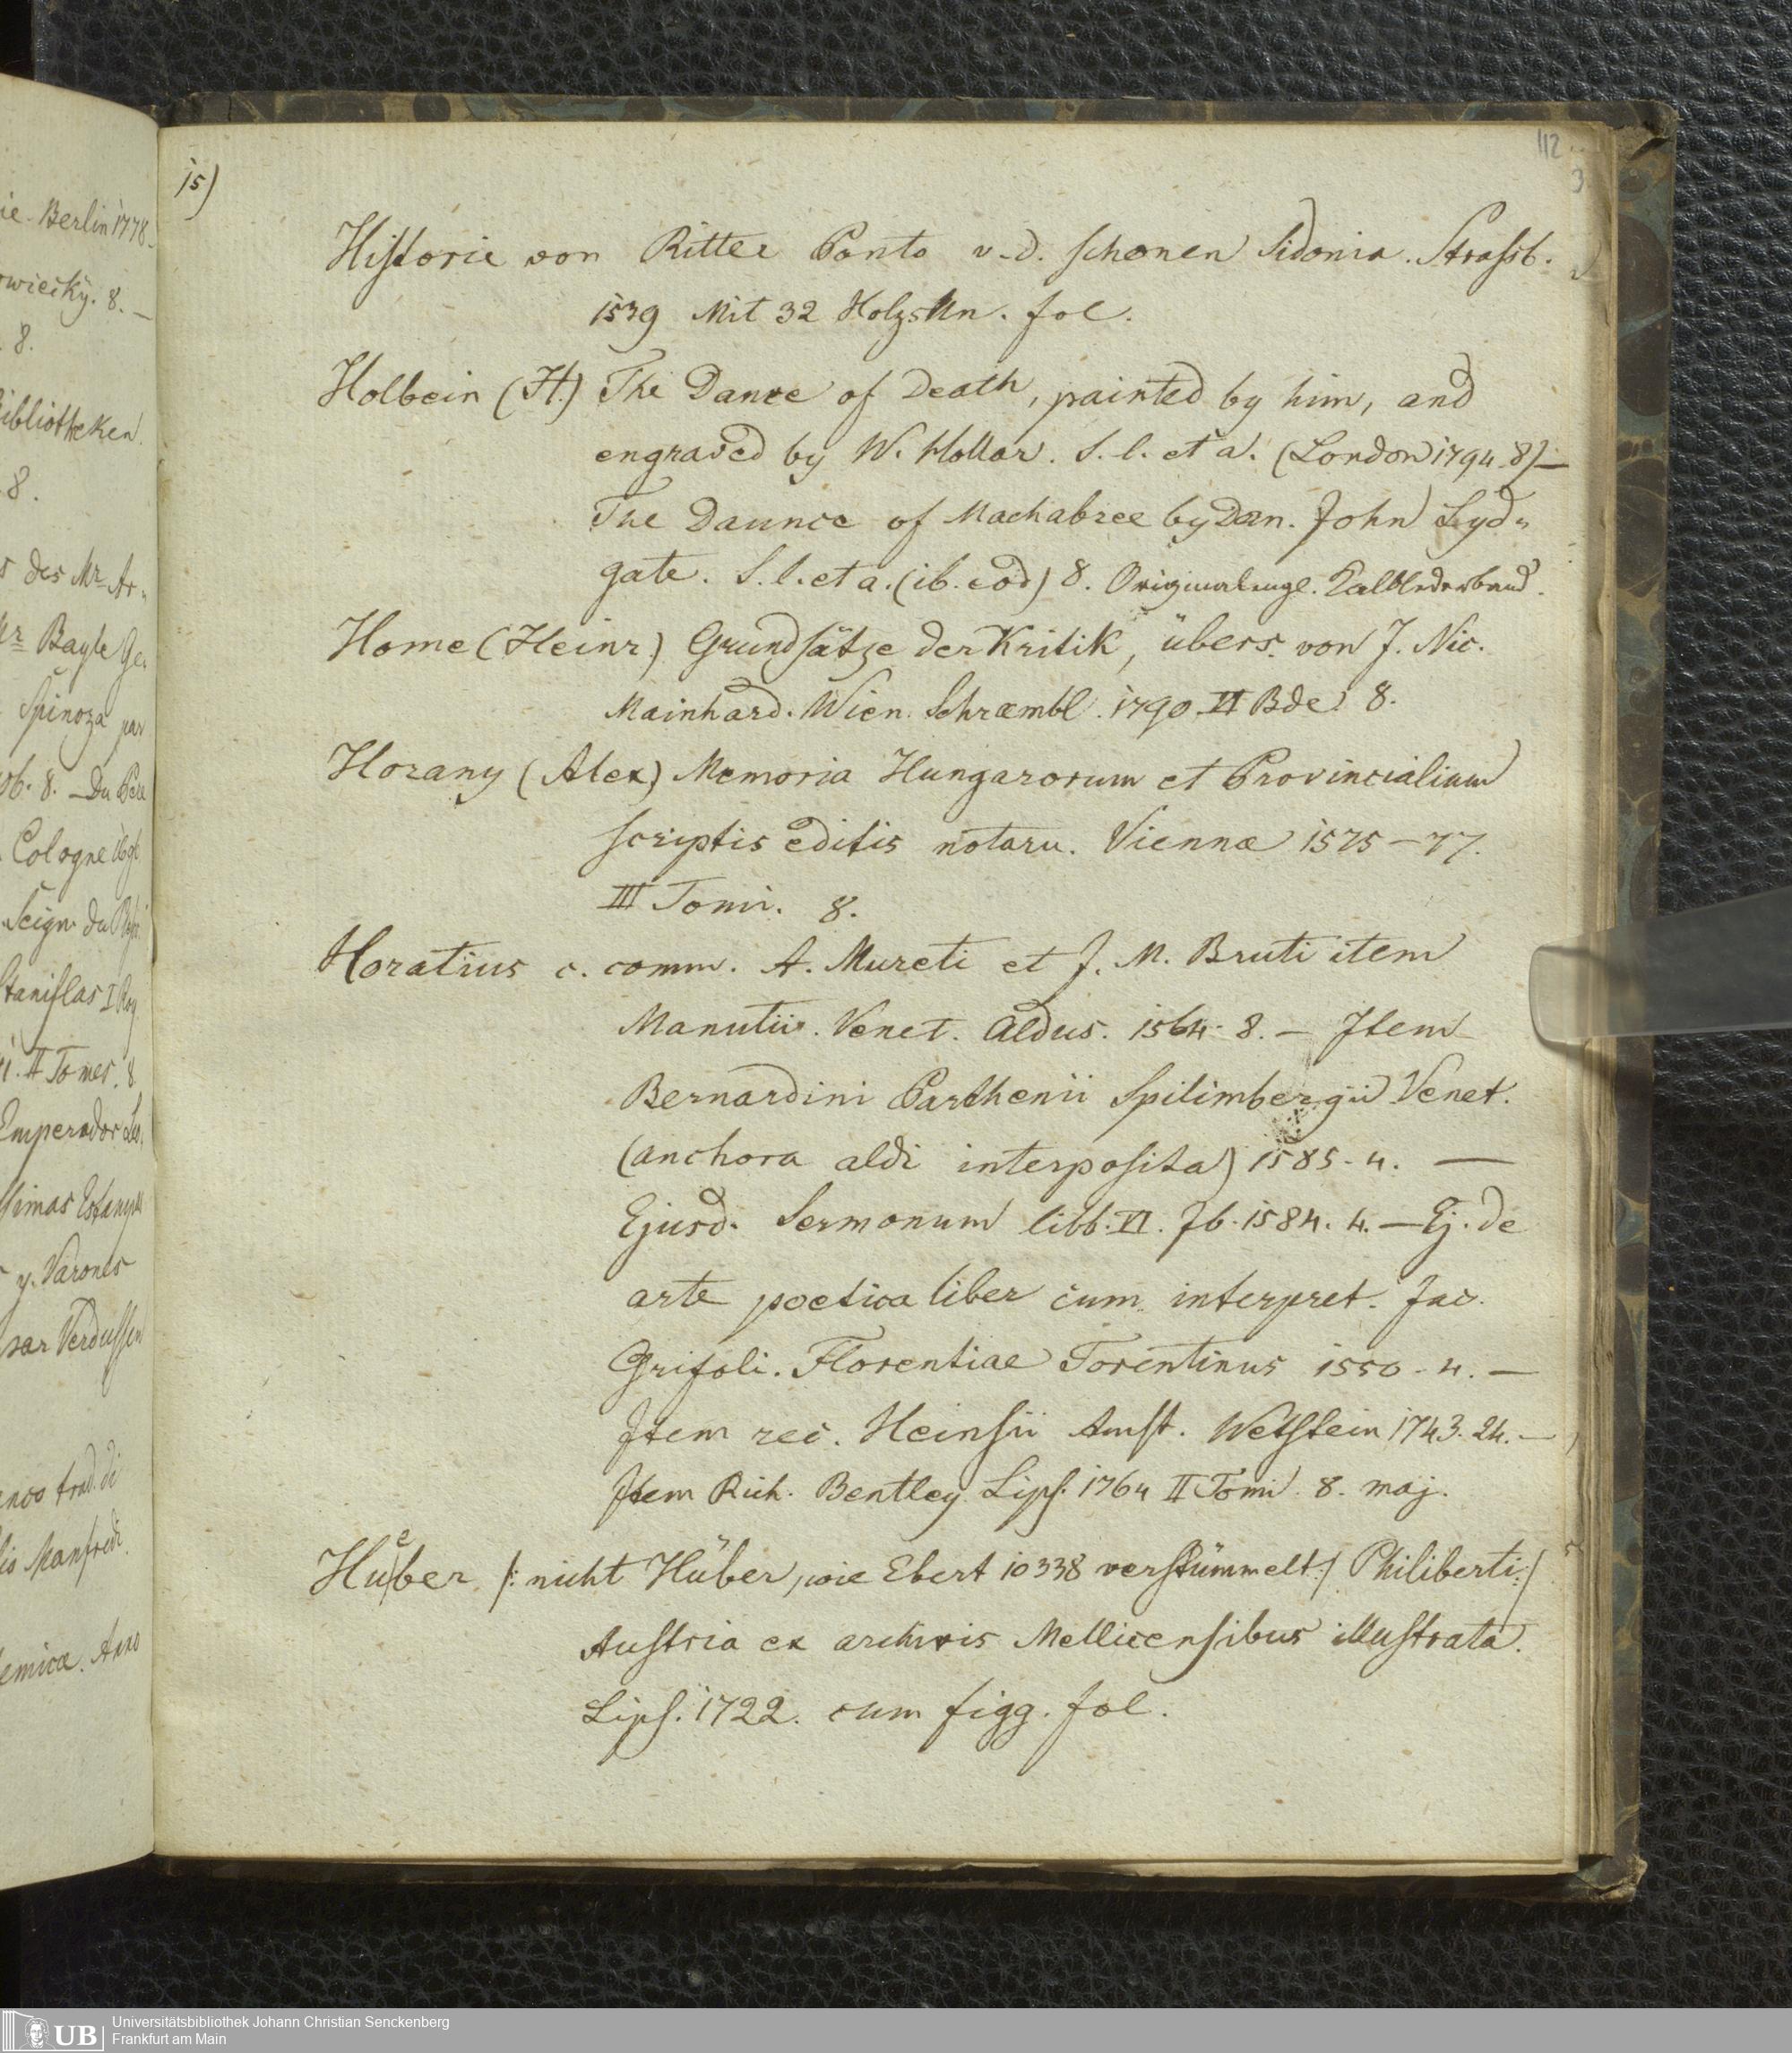 ie. Berlin 1778.
wiecky. 8. —
8.
ibliotheken.
8.
s des Mr. Ar-
Mr Bayle Ge-
Spinoza par
ob. 8. — Du Pere
Cologne
Seign. du
Stanislas I Roy
II Tomes. 8.
Emperador
simas Estampas
y. Varones
Verdussen
trad. di
Manfredi.
emica.
15)
112
3
Historie von Ritter Ponto v. d. schonen Sidonia. Strassb.
1539 Mit 32 Holzschn. fol.
Holbein (H.) The Dance of Death, painted by him, and
engraved by W. Hollar. S. l. et a. (London 1794. 8) —
The Daunce of Machabree by Dan. John Lyd-
gate. S. l. et a. (ib. eod) 8. Originalengl. Kalblederband.
Home (Heinr) Grundsätze der Kritik, übers. von J. Nic.
Mainhard. Wien. Schræmbl. 1790. VI Bde. 8.
Horany (Alex) Memoria Hungarorum et Provincialium
scriptis editis notaru. Viennæ 1575–77.
III Tomi. 8.
Horatius c. comm. A. Mureti et J. M. Bruti item
Manutii. Venet. Aldus. 1564. 8. — Item
Bernardini Parthenii Spilimbergii Venet.
(anchora aldi interposita) 1585. 4. —
Ejusd. Sermonum libb. VI. Ib. 1584. 4. — Ej. de
arte poetica liber cum interpret. Jac.
Grifoli. Florentiae Torentinus 1550. 4. —
Item rec. Heinsii Amst. Wetstein 1743. 24. —
Item Rich. Bentley Lips. 1764 II Tomi. 8. maj.
Hueber /: nicht Hüber, wie Ebert 10338 verstümmelt :/ Philiberti :/
Austria ex archivis Mellicensibus illustrata.
Lips. 1722. cum figg. fol.
UB
Universitätsbibliothek Johann Christian Senckenberg
Frankfurt am Main